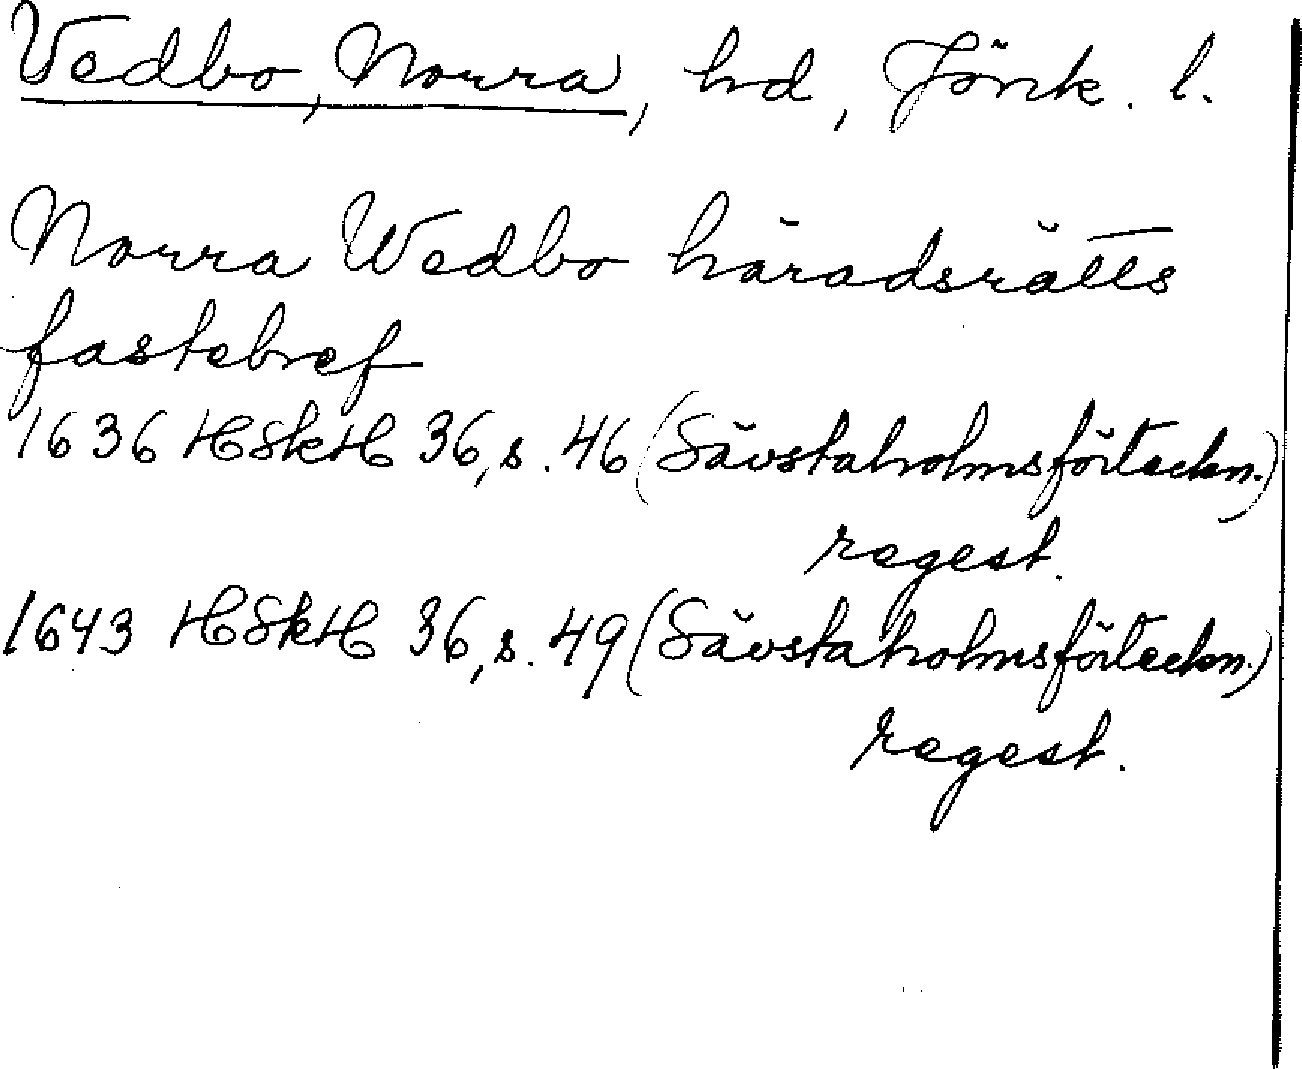 Vedbo, Norra, hd, Jönk. l.
Norra Wedbo häradsrätts
fastebref
1636 HSkH 36, s. 46 (Sävstaholmsförteckn.)
regest.
1643 HSkH 36, s. 49 (Sävstaholmsförteckn.)
regest.